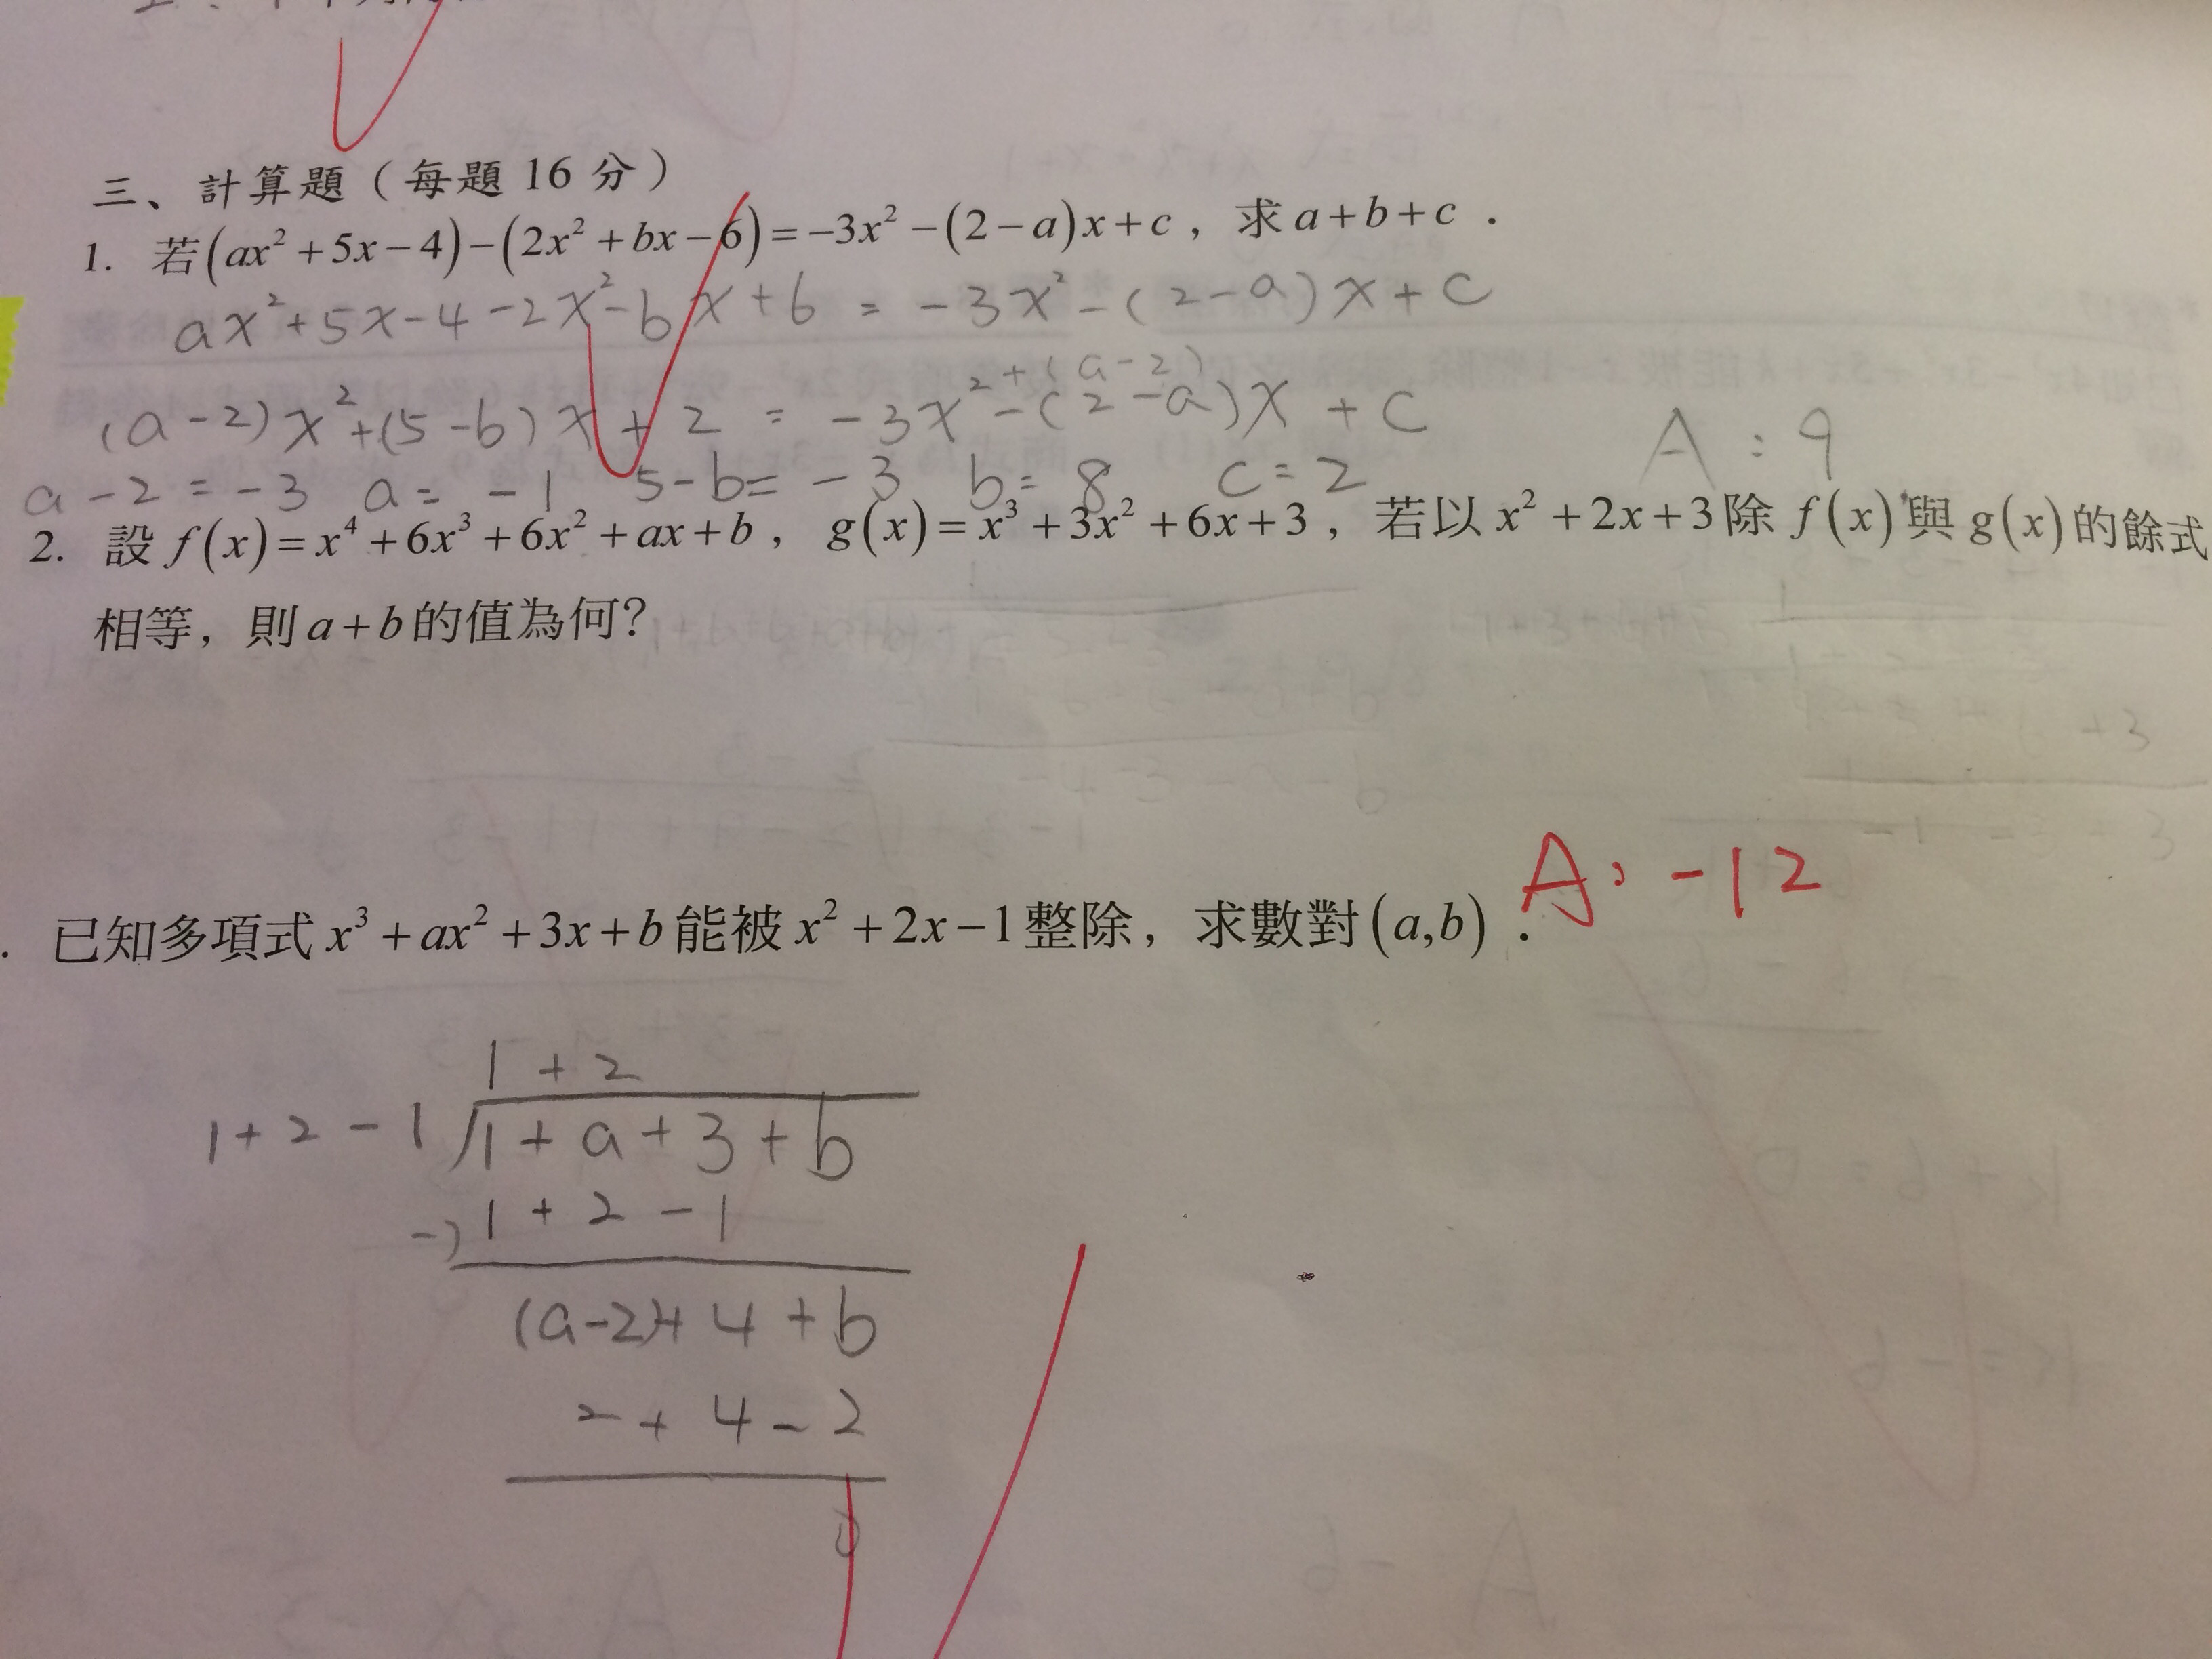 三、計算題（每題 16 分）
1. 若(ax²+5x−4)−(2x²+bx−6)=−3x²−(2−a)x+c，求a+b+c．
ax²+5x-4-2x²-bx+6 = -3x²-(2-a)x+c
+(a-2)
(a-2)x²+(5-b)x+2 = -3x²-(2-a)x+c
A:9
a-2=-3 a=-1 5-b=-3 b=8 c=2
2. 設f(x)=x⁴+6x³+6x²+ax+b，g(x)=x³+3x²+6x+3，若以x²+2x+3除f(x)與g(x)的餘式
相等，則a+b的值為何？
A: -12
. 已知多項式x³+ax²+3x+b能被x²+2x−1整除，求數對(a,b)．
1+2
1+2-1 1+a+3+b
-) 1+2-1
(a-2)+4+b
2+4-2
0